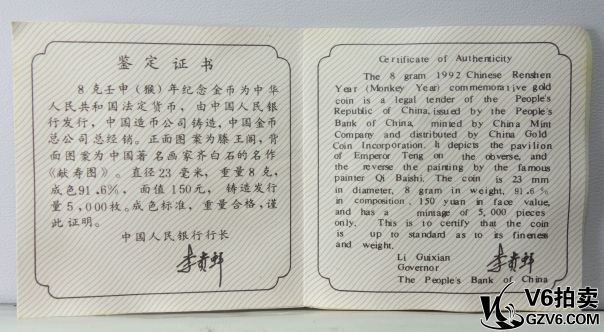 鉴定证书
8克壬申（猴）年纪念金币为中华
人民共和国法定货币，由中国人民银
行发行，中国造币公司铸造，中国金币
总公司总经销。正面图案为滕王阁，背
面图案为中国著名画家齐白石的名作
《献寿图》。直径23毫米，重量8克，
成色91.6%，面值150元，铸造发行
量5,000枚。成色标准，重量合格，谨
此证明。
中国人民银行行长
李贵鲜
Certificate of Authenticity
The 8 gram 1992 Chinese Renshen
Year (Monkey Year) commemorative gold
coin is a legal tender of the People's
Republic of China, issued by the People's
Bank of China, minted by China Mint
Company and distributed by China Gold
Coin Incorporation. It depicts the pavilion
of Emperor Teng on the obverse, and
the reverse the painting by the famous
painter Qi Baishi. The coin is 23 mm
in diameter, 8 gram in weight, 91.6%
in composition, 150 yuan in face value,
and has a mintage of 5,000 pieces
only. This is to certify that the coin
is up to standard as to its fineness
and weight.
Li Guixian
Governor
李贵鲜
The People's Bank of China
V6拍卖
GZV6.COM